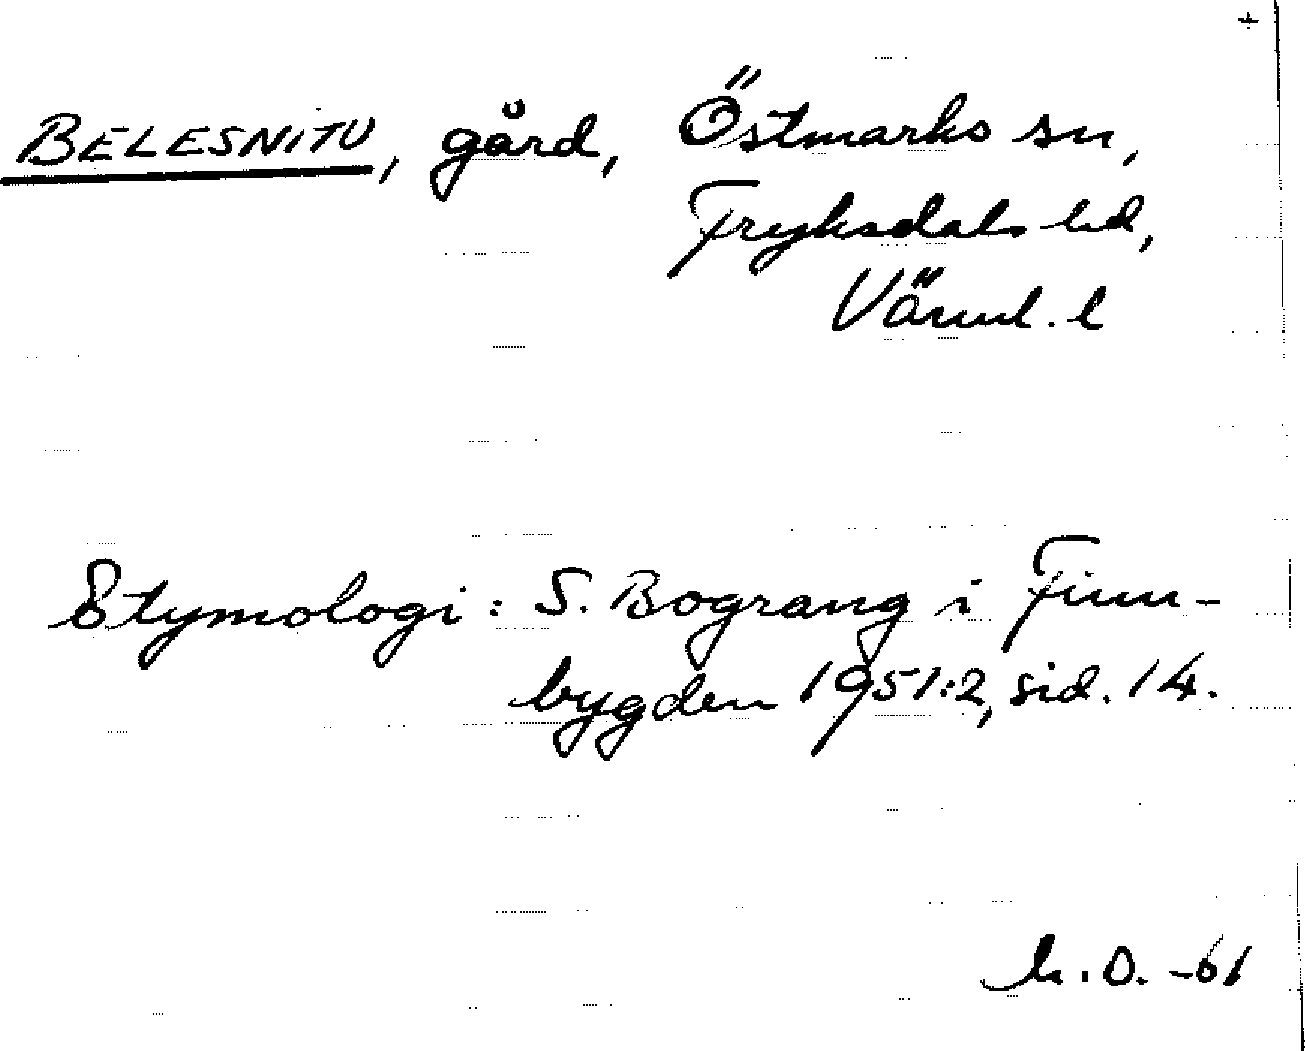 +
BELESNITU, gård, Östmarks sn,
Fryksdals hd,
Värml. l
Etymologi: S. Bograng i Finn-
bygden 1951:2, sid. 14.
h.O. -61